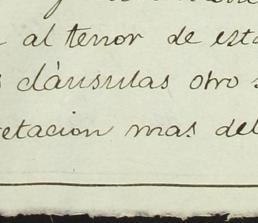 al tenor de esta
cláusulas otro
etacion mas del